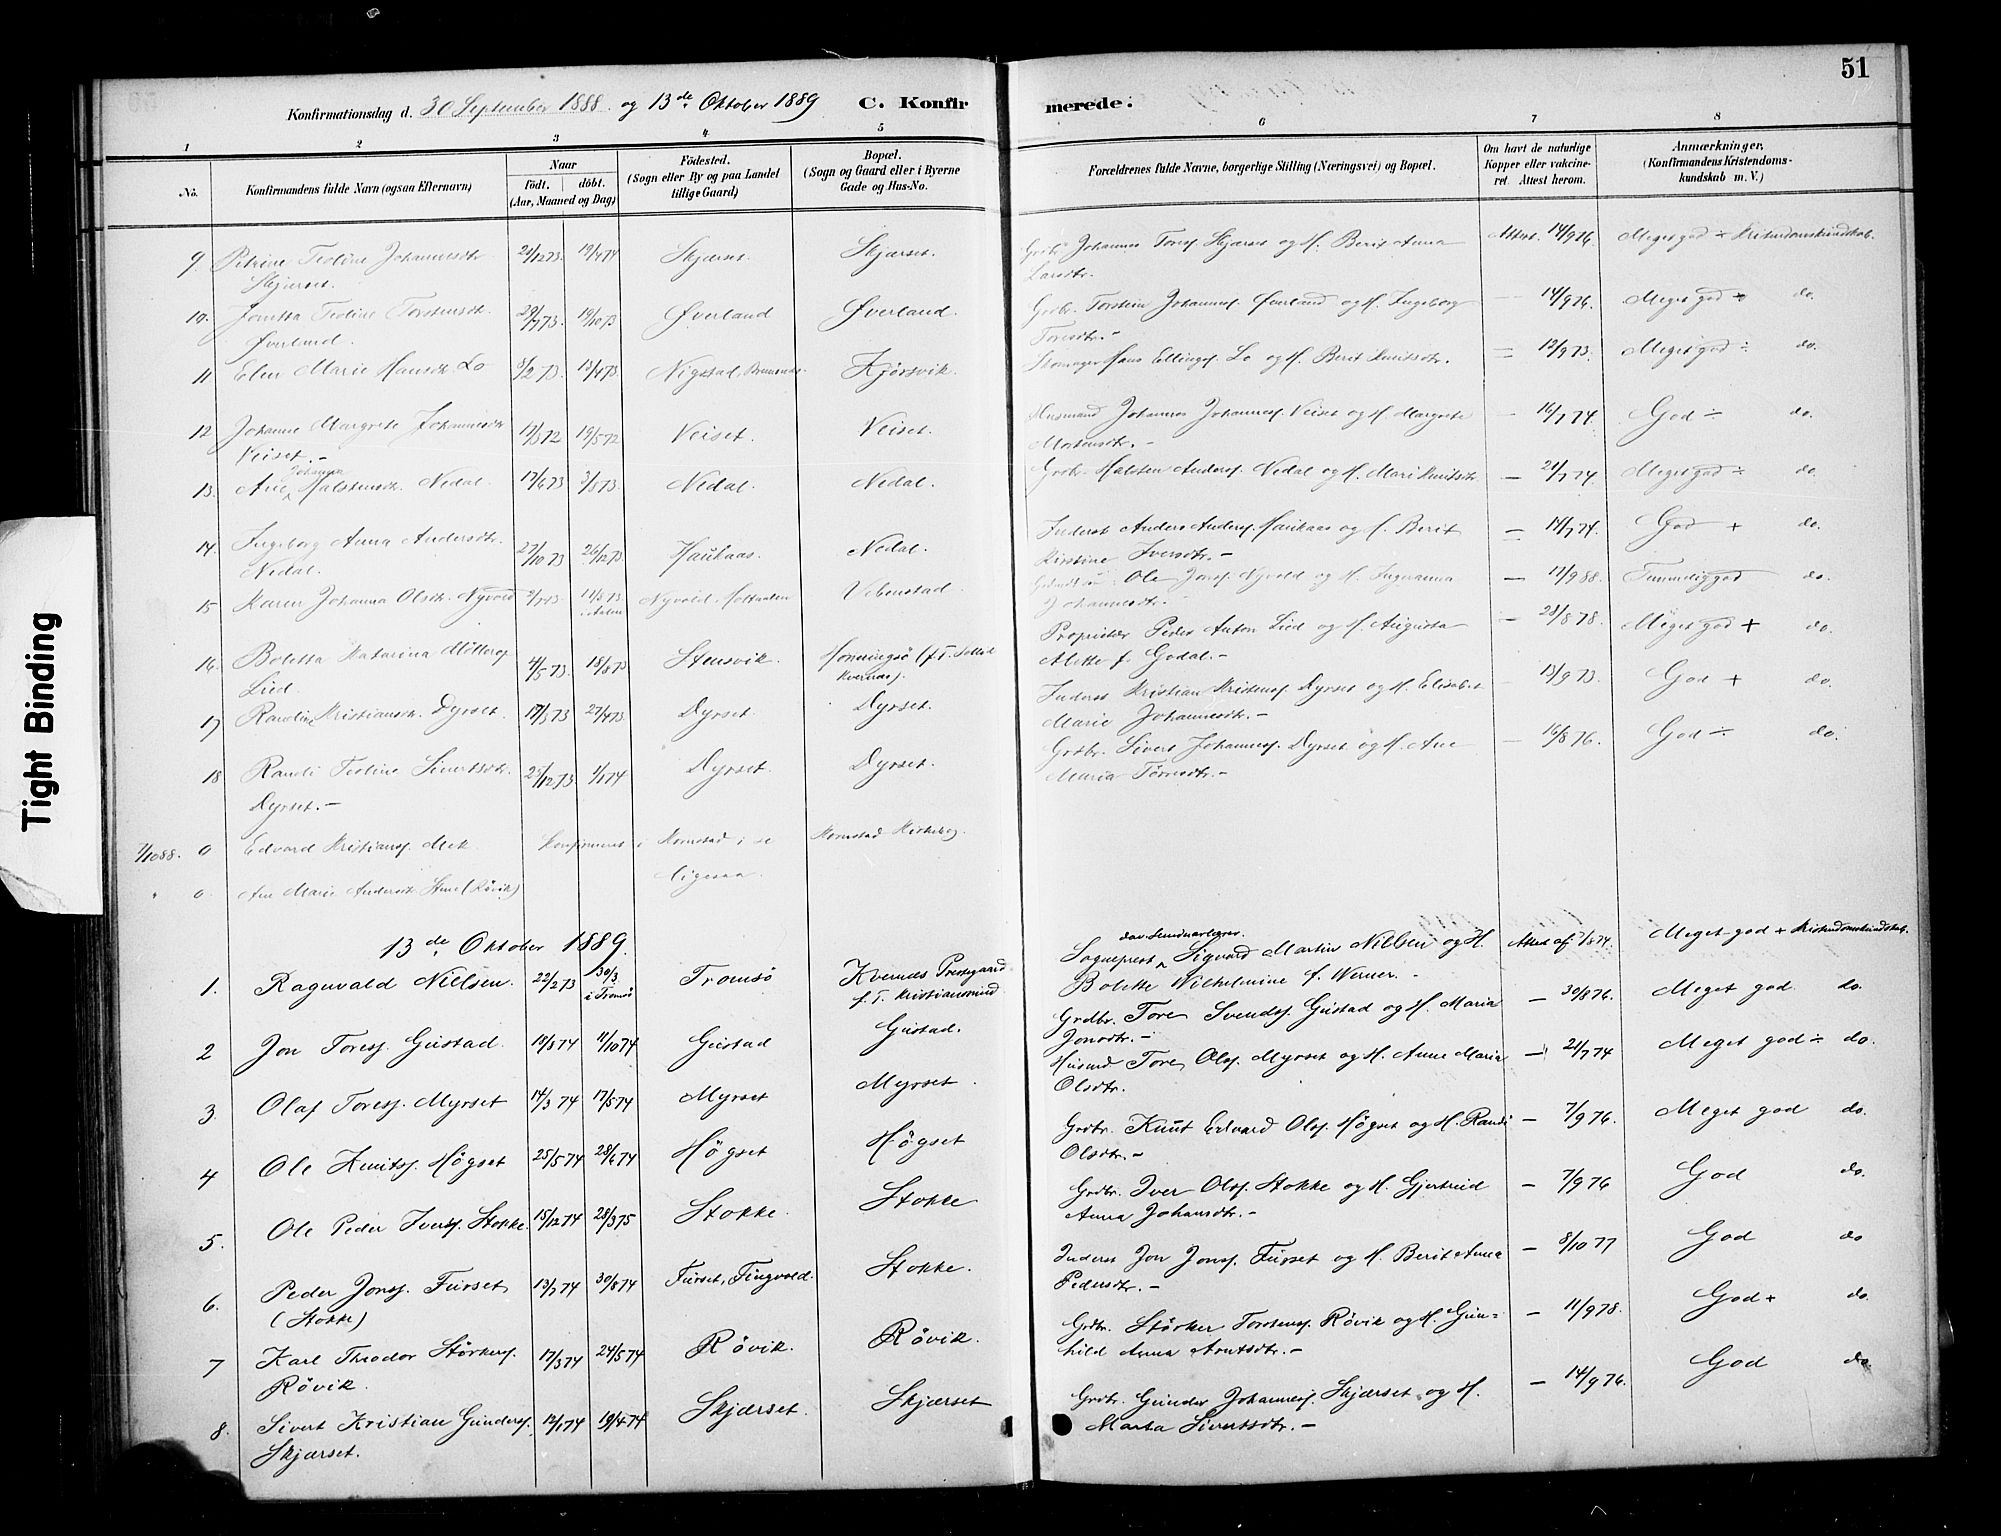 51
Konfirmationsdag d. 30 September 1888 og 13de Oktober 1889 C. Konfirmerede.
1 2 3 4 5 6 7 8
No. Konfirmandens fulde Navn (ogsaa Efternavn) Naar født. døbt. (Aar, Maaned og Dag) Fødested. (Sogn eller By og paa Landet tillige Gaard) Bopæl. (Sogn og Gaard eller i Byerne Gade og Hus-No. Forældrenes fulde Navne, borgerlige Stilling (Næringsvei) og Bopæl. Om havt de naturlige Kopper eller vakcineret. Attest herom. Anmærkninger. (Konfirmandens Kristendomskundskab m. V.)
9 Petrine Toline Johannesdtr. 21/12 73 19/4 74 Skjærset Skjærset. Grdbr. Johannes Toresf. Skjærset og H. Berit Anna Attest. 14/9 76. Meget god ÷ Kristendomskundskab.
Skjærset. Larsdtr.
10. Jonetta Toline Torstensdtr. 29/7 73. 19/10 73 Øverland Øverland. Grdbr. Torstein Johannesf. Øverland og H. Ingeborg — 14/9 76. Meget god do.
Øverland. Toresdtr. —
11 Elen Marie Hansdtr. Lo 8/2 73. 13/4 73 Nigstad, Kjørsvik. Skomager Hans Ellingsf. Lo og H. Berit Knutsdtr. 12/9 73. Meget god ÷ do.
12 Johanne Margrete Johannesdtr. 17/3 72 19/5 72 Veiset. Veiset. Husmand Johannes Johannesf. Veiset og H. Margrete — 16/7 74. God ÷ do.
Veiset. — Mortensdtr. —
13. Ane Johanna Halstensdtr. Nedal 17/6 73 3/8 73. Nedal. Nedal. Grdbr. Halsten Andersf. Nedal og H. Mari Knutsdtr. — 21/7 74. Meget god ÷ do.
14. Ingeborg Anna Andersdtr. 27/10 73 26/12 73 Haukaas. Nedal. Inderst Anders Andersf. Haukaas og H. Berit 14/7 74. God + do.
Nedal. Kirstine Iversdtr. —
15 Karen Johanna Olsdtr. Nyvold 11/5 73 i Aalen Nyvold, Holtaalen Vebenstad. Ole Jonsf. Nyvold og H. Ingeranna — 17/9 88. Temmelig god do.
Johannesdtr. —
16. Boletta Katarina Møllerop 4/5 73 18/8 73 Stensvik. Honningsø (f. T. Kvernæs). Proprietær Peder Anton Lied og H. Augusta — 28/8 78. Meget god + do.
Lied. Alette f. Godal. —
17 Randine Kristiansdtr. Dyrset. 17/3 73 27/4 73. Dyrset. Dyrset. Inderst Kristian Kristensf. Dyrset og H. Elisabet — 13/9 73. God + do.
Marie Johannesdtr. —
18 Randi Toline Sivertsdtr. 25/12 73 1/1 74 Dyrset. Dyrset. Grdbr. Sivert Johannesf. Dyrset og H. Ane — 16/8 76. God ÷ do.
Dyrset. — Maria Toresdtr. —
7/10 88. 0 Edvard Kristiansf. Mek. Konfirmeret i Kornstad; se Kornstad Kirkebog.
" 0. Ane Marie Andersdtr. Stene (Røvik) ligesaa.
13de Oktober 1889.
1. Ragnvald Nielsen. 22/2 73 30/3 i Tromsø Tromsø Kvernæs Prestegaard f. T. Kristiansund. Sogneprest dav. Seminarlærer. Sigvard Martin Nielsen og H. Attest af 7/8 74. Meget god + Kristendomskundskab.
Bolette Wilhelmine f. Werner. —
2 Jon Toresf. Gustad. 19/8 74 11/10 74 Gustad Gustad. Grdbr. Tore Svendsf. Gustad og H. Maria — 30/8 76. Meget god do.
Jonsdtr. —
3. Olaf Toresf. Myrset 14/3 74 17/5 74 Myrset Myrset Husmd Tore Olsf. Myrset og H. Anne Maria — 21/7 74 Meget god ÷ do.
Olsdtr.
4 Ole Knutsf. Høgset 25/5 74 28/6 74 Høgset Høgset Grdbr. Knut Edvard Olsf. Høgset og H. Randi — 7/9 76. Meget god do.
Olsdtr. —
5. Ole Peder Iversf. Stokke. 15/12 74 28/3 75 Stokke. Stokke Grdbr. Iver Olsf. Stokke og H. Gjertrud — 7/9 76 God do.
Anna Johansdtr. —
6. Peder Jonsf. Furset 13/7 74 30/8 74 Furset, Tingvold. Stokke. Inderst Jon Jonsf. Furset og H. Berit Anna — 8/10 77 God do
(Stokke) Pedersdtr. —
7 Karl Theodor Størkersf. 17/3 74 24/5 74 Røvik. Røvik. Grdbr. Størker Torstensf. Røvik og H. Gun- — 11/9 78. God + do.
Røvik. hild Anna Arntsdtr. —
8. Sivert Kristian Gundersf. 12/1 74 19/4 74 Skjærset. Skjærset Grdbr. Gunder Johannesf. Skjærset og H. — 14/9 76. God do.
Skjærset. Marta Sivertsdtr. —
Tight Binding